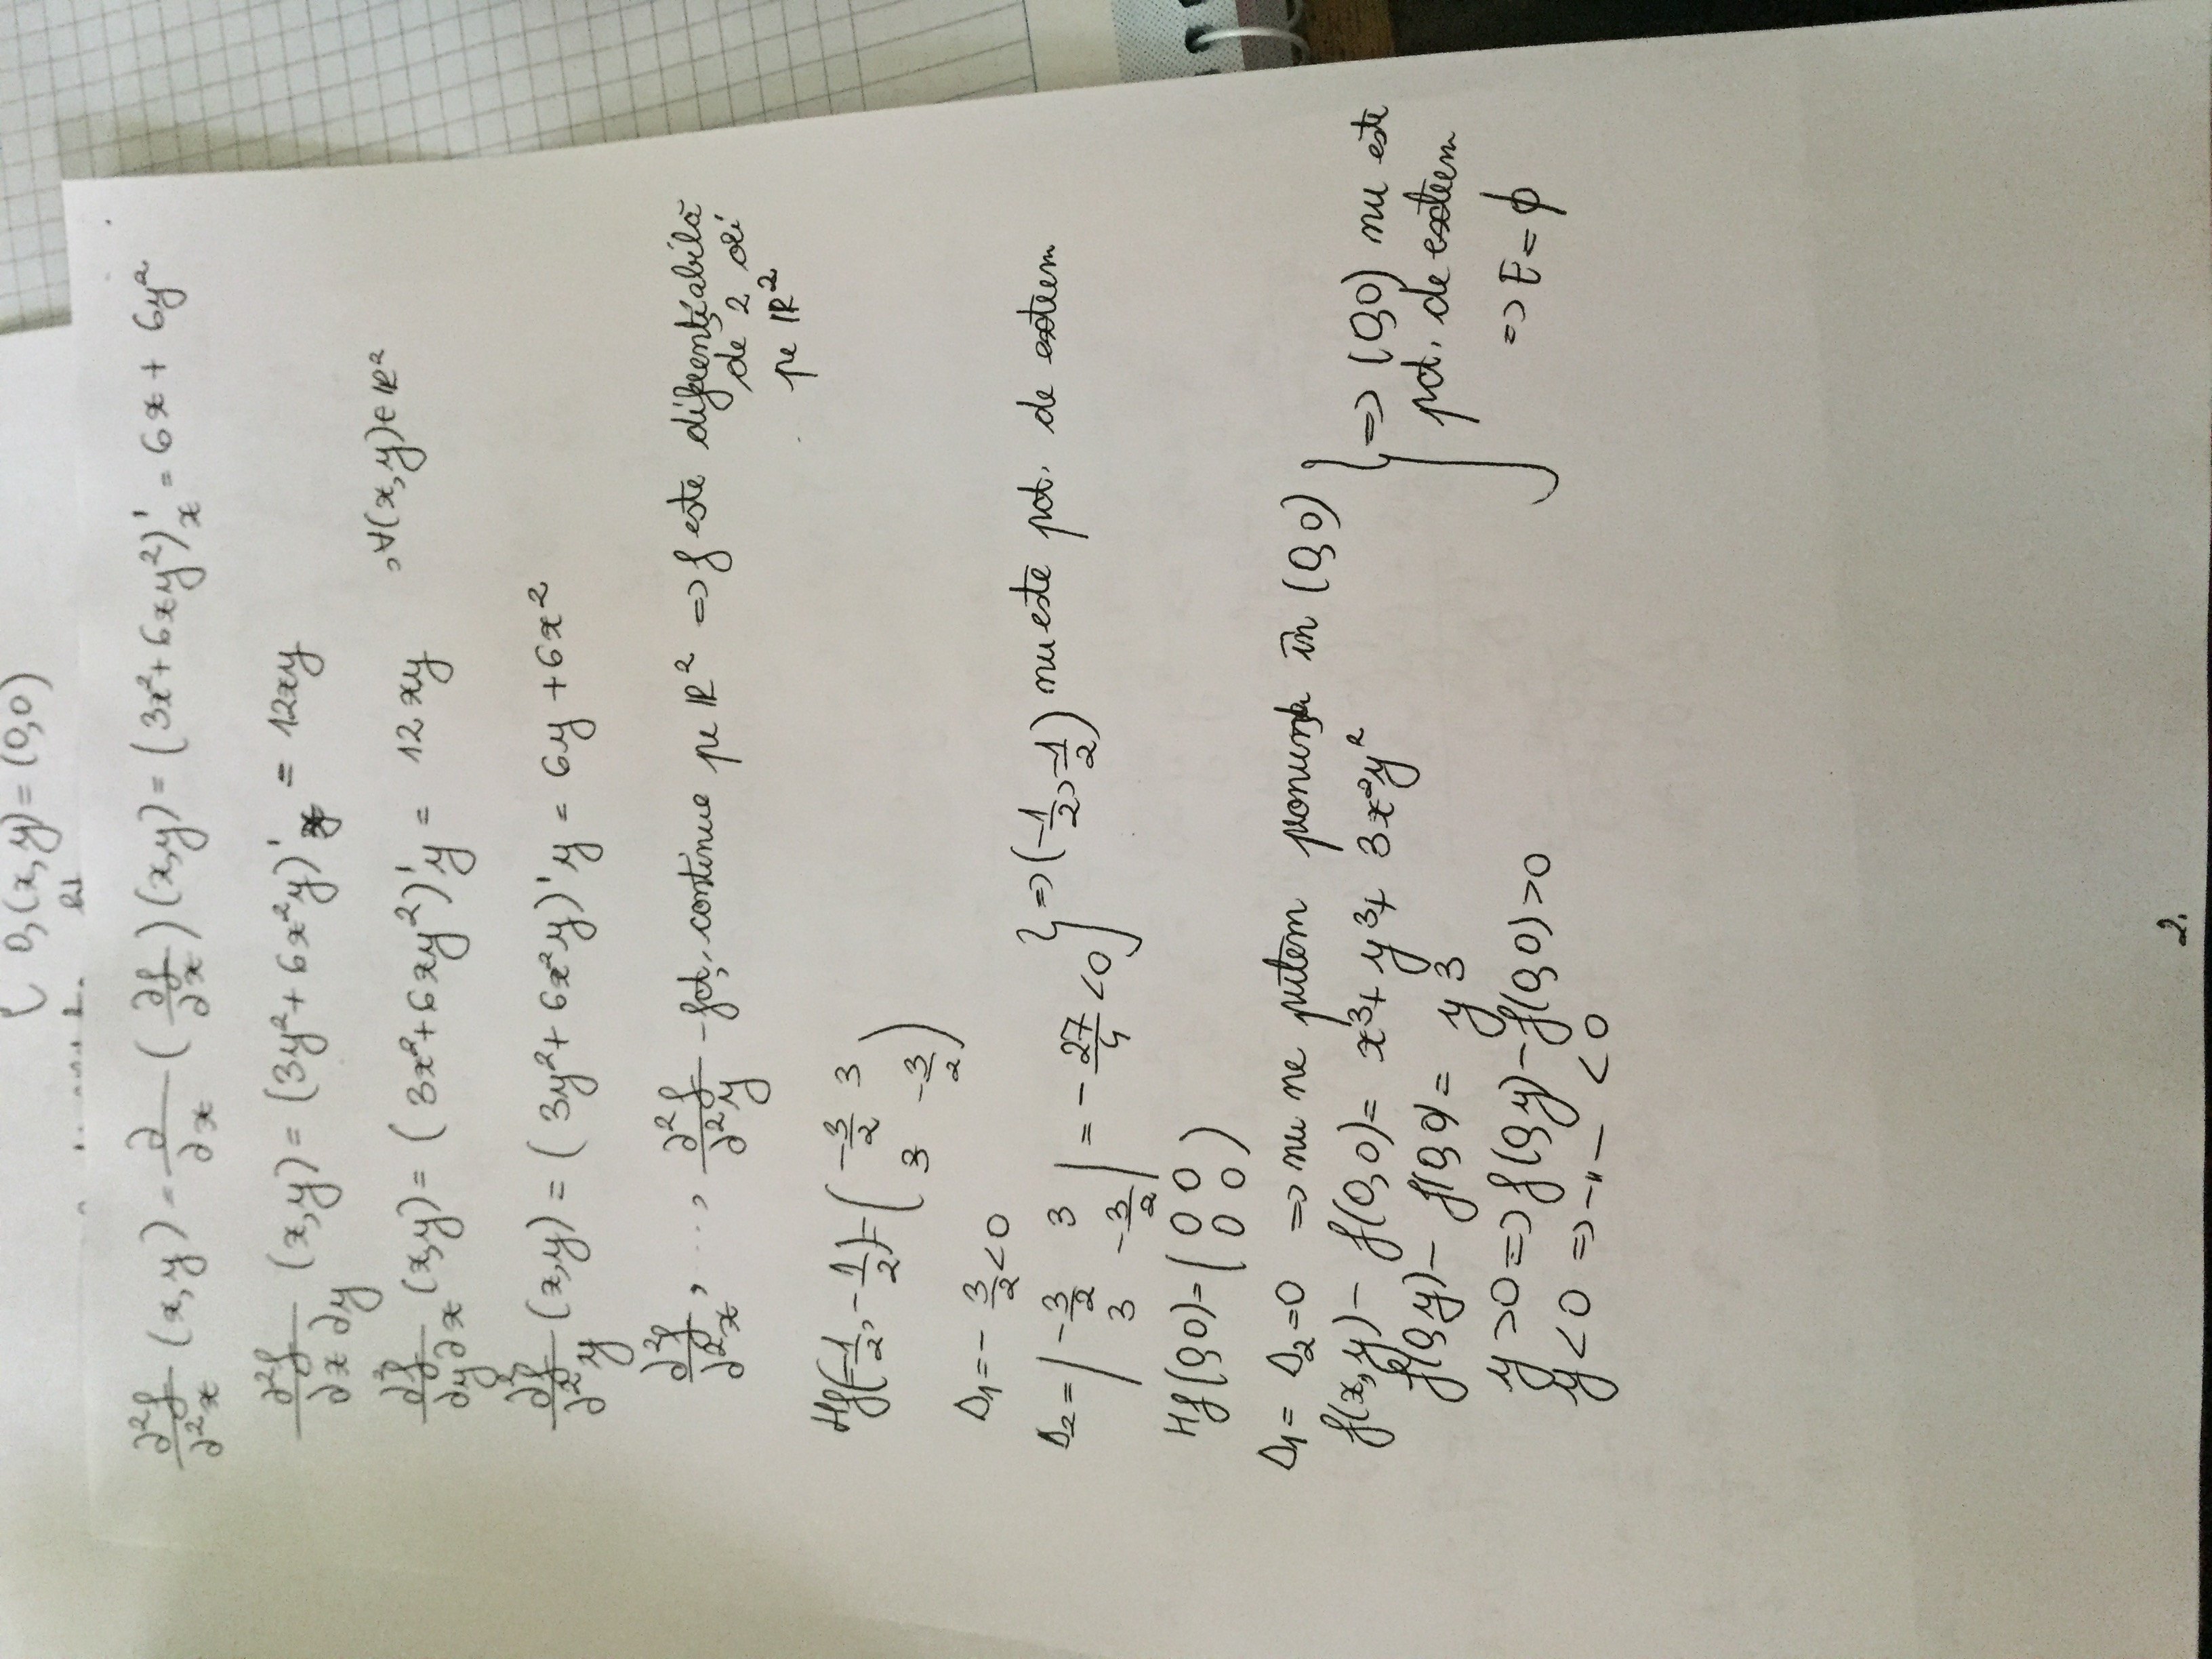 { 0, (x,y) = (0,0)
∂²f/∂²x (x,y) = ∂/∂x (∂f/∂x) (x,y) = (3x² + 6xy²)'x = 6x + 6y²
∂²f/∂x∂y (x,y) = (3y² + 6x²y)'x = 12xy
∂²f/∂y∂x (x,y) = (3x² + 6xy²)'y = 12xy , ∀(x,y)∈ℝ²
∂²f/∂²y (x,y) = (3y² + 6x²y)'y = 6y + 6x²
∂²f/∂²x , ..., ∂²f/∂²y - fct. continue pe ℝ² => f este diferențiabilă
de 2 ori
pe ℝ²
Hf(-1/2, -1/2) = ( -3/2 3
3 -3/2 )
Δ1 = -3/2 < 0
Δ2 = | -3/2 3
3 -3/2 | = -27/4 < 0 } => (-1/2, -1/2) nu este pct. de extrem
Hf(0,0) = ( 0 0
0 0 )
Δ1 = Δ2 = 0 => nu ne putem pronunța în (0,0)
f(x,y) - f(0,0) = x³ + y³ + 3x²y² } => (0,0) nu este
f(0,y) - f(0,0) = y³ pct. de extrem
y > 0 => f(0,y) - f(0,0) > 0 => E = ϕ
y < 0 => -"- < 0
2.